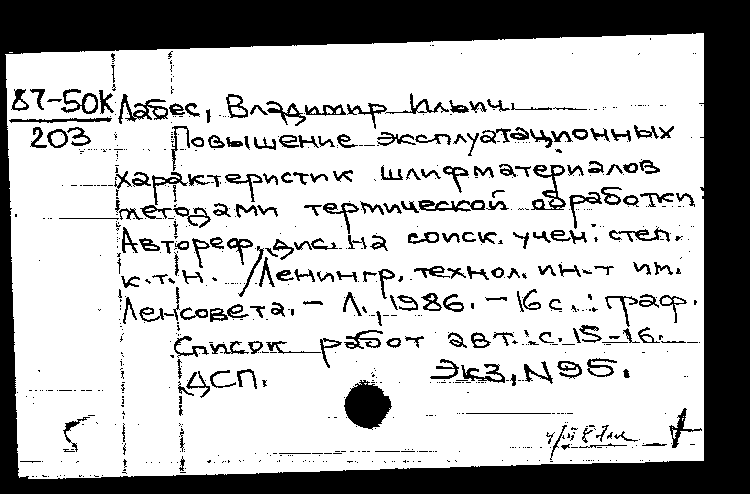 87-50К Лабес, Владимир Ильич.
203 Повышение эксплуатационных
характеристик шлифматериалов
методами термической обработки:
Автореф. дис. на соиск. учен. степ.
к.т.н. / Ленингр. технол. ин-т им.
Ленсовета. - Л., 1986. - 16 с. : граф.
Список работ авт.: с. 15-16.
ДСП. Экз. N 95.
5